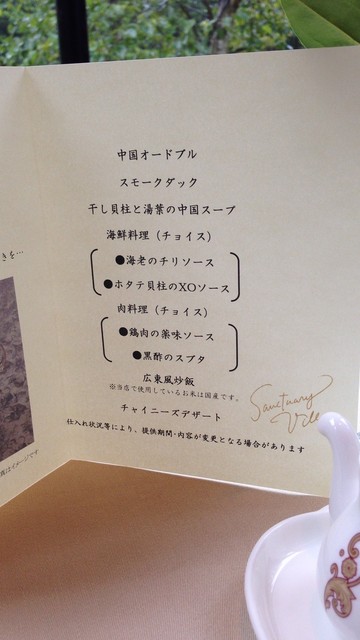 中国オードブル
スモークダック
干し貝柱と湯葉の中国スープ
海鮮料理（チョイス）
●海老のチリソース
●ホタテ貝柱のXOソース
肉料理（チョイス）
●鶏肉の薬味ソース
●黒酢のスブタ
広東風炒飯
※当店で使用しているお米は国産です。
チャイニーズデザート
仕入れ状況等により、提供期間・内容が変更となる場合があります
Sanctuary
きを…
真はイメージです